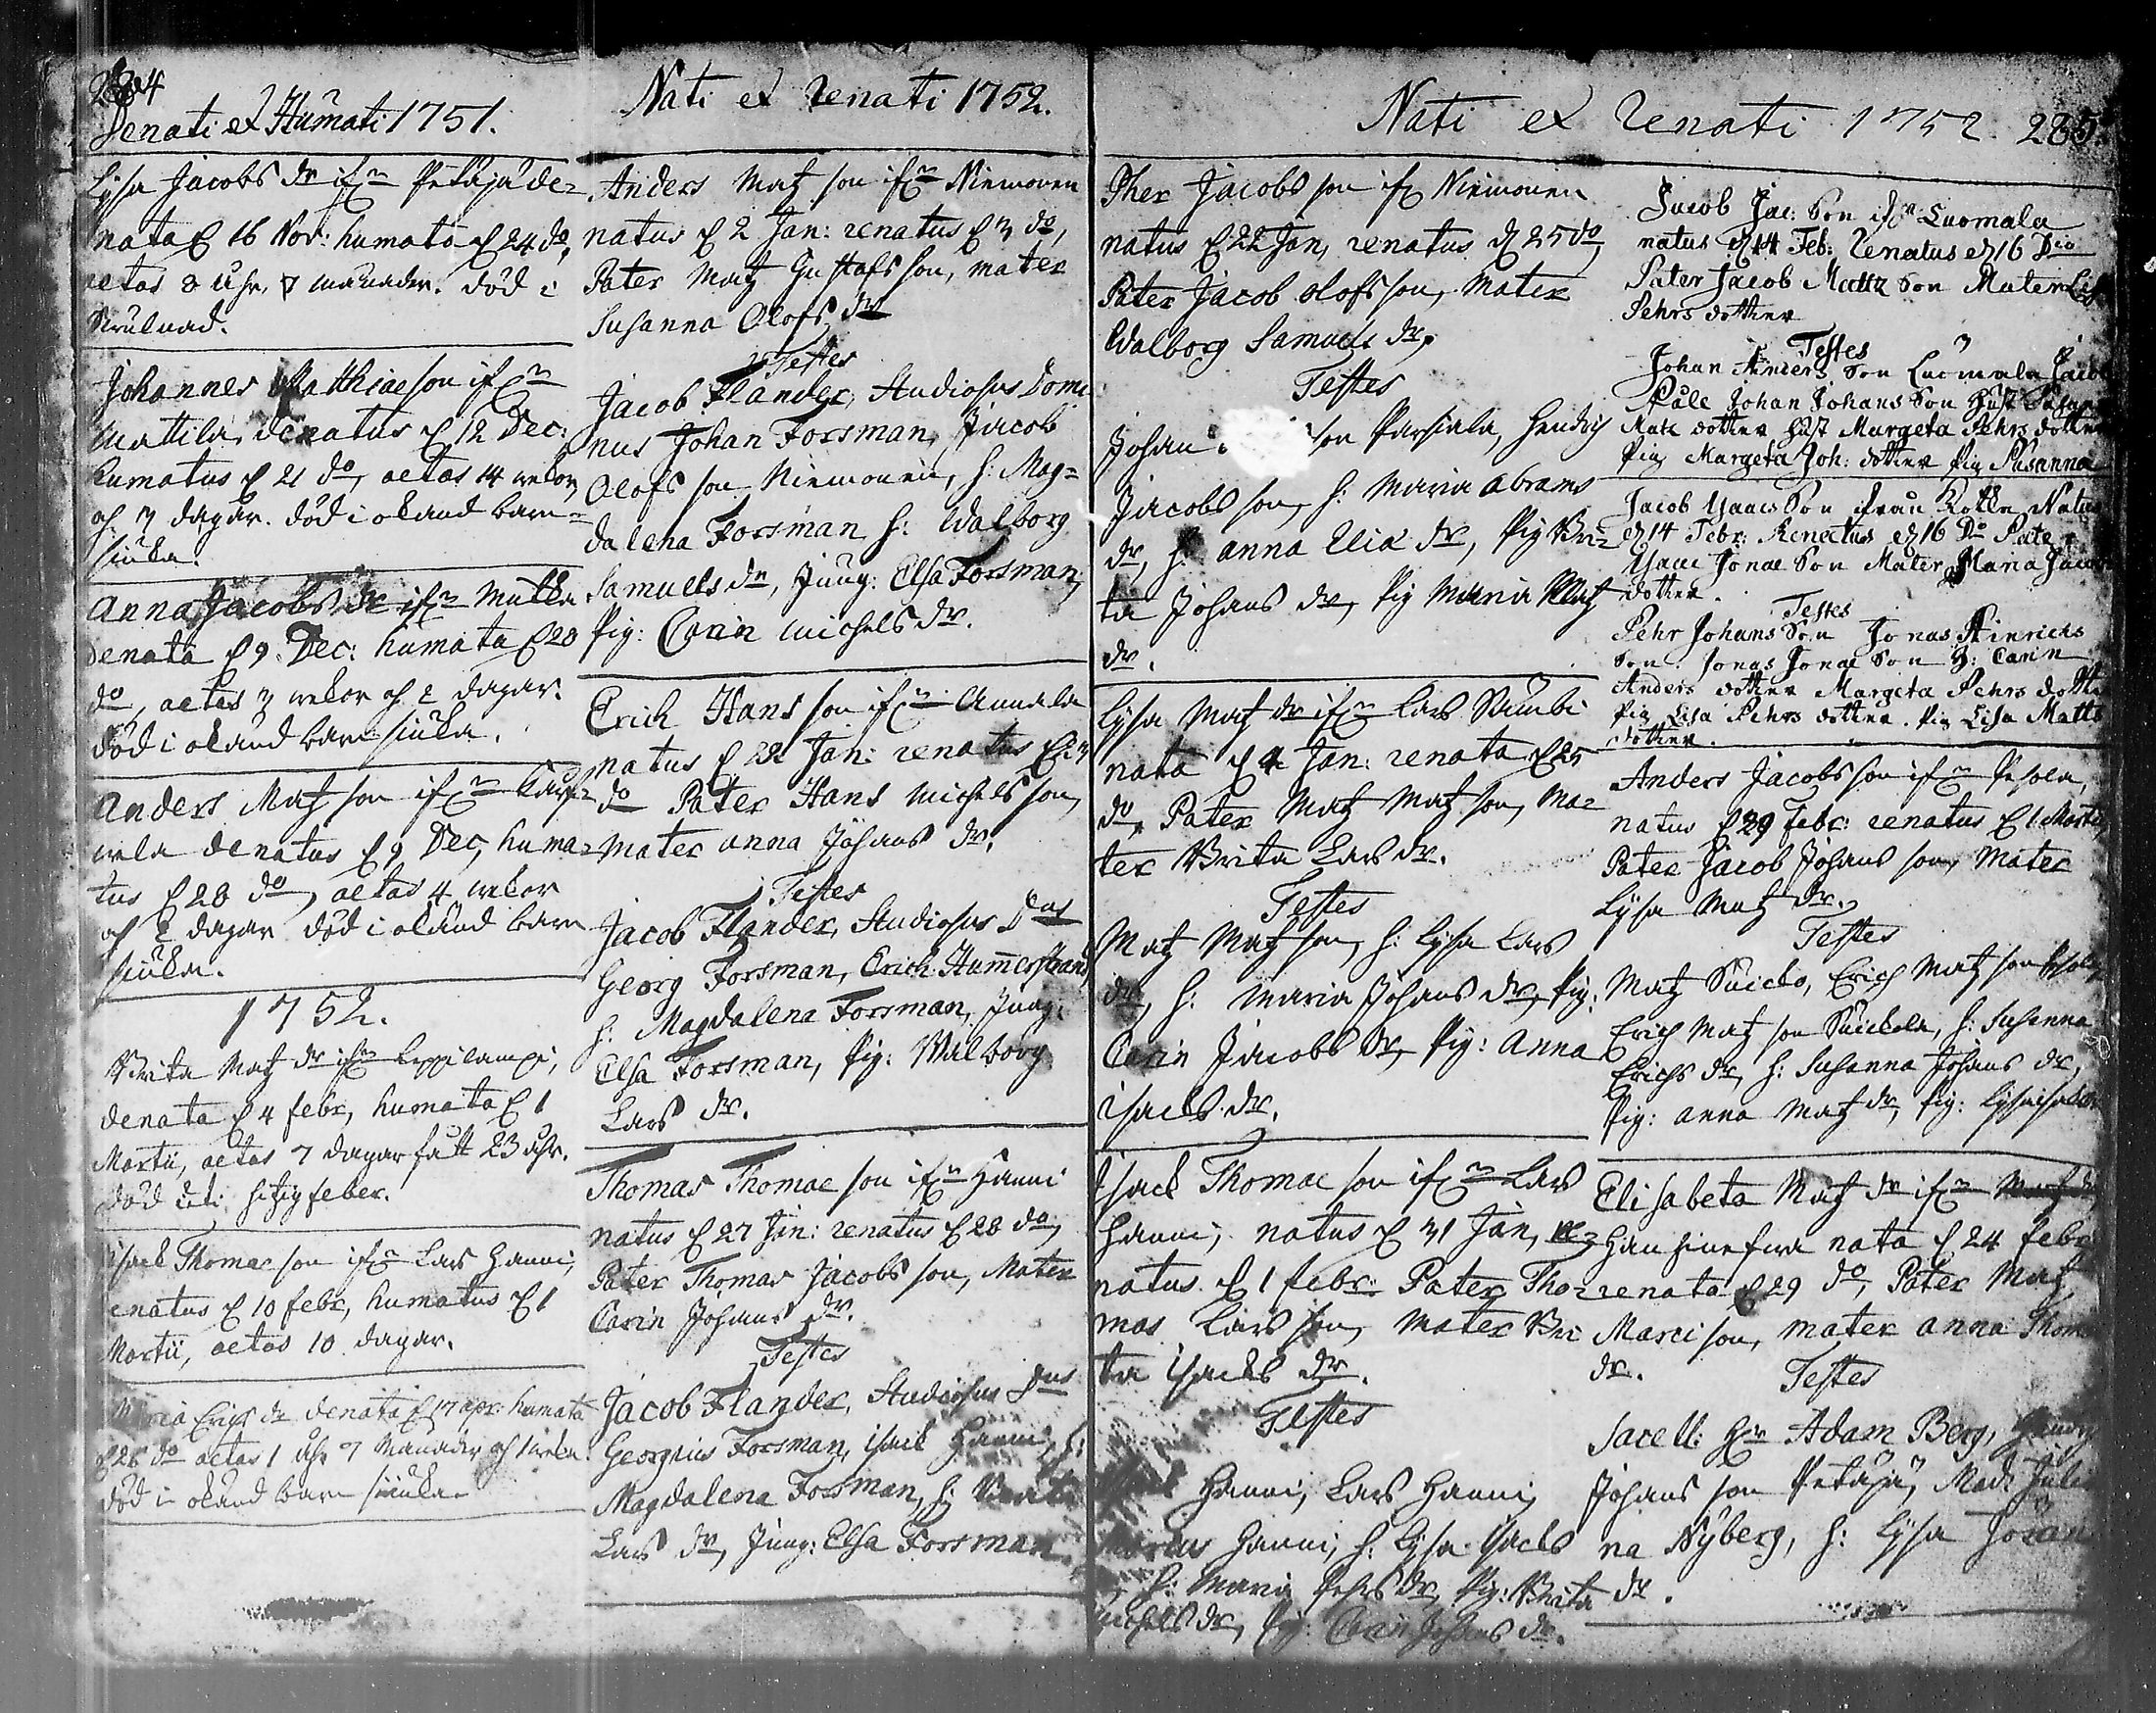 284
Denati et Humati 1751.
Lysa Jacobs dr ifrn Petäjä de-
nata d 16 Nov: humata d 24 do,
aetas 8 åhr, 7 månader. död i
Johannes Matthiae son ifrn
Mattila, denatus d 12 Dec:
humatus d 21 do, aetas 14 wekor
och 3 dagar. död i okänd barn-
siuka.
Anna Jacobs dr ifrn Mattla
denata d 9 Dec: humata d 28
do, aetas 3 wekor och 2 dagar.
död i okänd barn siuka.
Anders Matz son ifrn
denatus d 9 Dec, huma-
tus d 28 do, aetas 4 wekor
och 2 dagar död i okänd barn
siuka.
1752.
Brita Matz dr ifrn Leppilampi,
denata d 4 febr, humata d 1
Martii, aetas 7 dagar fatt 23 åhr.
död uti hitzig feber.
Isack Thomae son ifrn Lars Hanni,
denatus d 10 febr, humatus d 1
Martii, aetas 10 dagar.
Maria Erichs dr denata d 17 apr: humata
d 26 do aetas 1 åhr 7 Månader och 1 weka
död i okänd barn siuka
Nati et renati 1752.
Anders Matz son ifrn Niemonen
natus d 2 Jan: renatus d 3 do,
Pater Matz Gustafs son, mater
Susanna Olofs dr
Testes
Jacob Flander, Studiosus Domi
nus Johan Forsman, Jacob
Olofs son Niemonen, h: Mag-
dalena Forsman h: Walborg
Samuels dr, Jung: Elsa Forsman,
Pig: Carin Michels dr.
Erich Hans son ifrn Annala
natus d 22 Jan: renatus d
do Pater Hans Michels son,
mater anna Johans dr.
Testes
Jacob Flander, Studiosus Dns
Georg Forsman, Erich Hammerstrand,
h: Magdalena Forsman, Jung:
Elsa Forsman, Pig: Walborg
Lars dr.
Thomas Thomae son ifrn Hanni
natus d 27 Jan: renatus d 28 do,
Pater Thomas Jacobs son, Mater
Carin Johans dr.
Testes
Jacob Flander, Studiosus Dns
Georgius Forsman, Isack Hanni, h:
Magdalena Forsman, h:
Lars dr, Jung: Elsa Forsman.
Nati et Renati 1752. 285.
Pher Jacobs son ifr Niemonen
natus d 22 Jan, renatus d 25 do,
Pater Jacob Olofs son, Mater
Walborg Samuels dr,
Testes
Johan son Parsiala, Hendrich
Jacobs son, h: Maria Abrams
dr, h: anna Elia dr, Pig Bri-
ta Johans dr, Pig Maria Matz
dr.
Lysa Matz dr ifrn Lars
nata d 4 Jan: renata d 25
do, Pater Matz Matz son, Ma-
ter Brita Lars dr.
Testes
Matz Matz son, h: Lysa Lars
dr, h: Maria Johans dr, Pig:
Carin Jacobs dr, Pig: Anna
Isacks dr.
Isack Thomae son ifrn Lars
Hanni, natus d 31 Jan, re-
natus d 1 febr: Pater Tho-
mas Lars son, Mater Bri
ta Isacks dr.
Testes
Hanni, Lars Hanni,
Hanni, h: Lysa Isacks
h: Maria Pehrs dr, Pig: Brita
Michels dr, Pig: Carin Johans dr.
Jacob Jac: Son ifrn Luomala
natus d 14 Feb: Renatus d 16 Dio
Pater Jacob Mattz Son Mater
Pehrs dotter
Testes
Johan Anders Son Luomala Jacob
Påle Johan Johans Son Hust
Matz dotter Hust Margeta Pehrs dotter
Pig Margeta Joh: dotter Pig Susanna
Jacob Isaacs Son ifrån Natus
d 14 Febr: Renatus d 16 Do Pater
Isaac Jonae Son Mater Maria Jacobs
dotter.
Testes
Pehr Johans Son Jonas Hinrichs
Son. Jonas Jonae Son H: Carin
Anders dotter Margeta Pehrs dotter
Pig Lisa Pehrs dotter. Pig Lisa Matts
dotter.
Anders Jacobs son ifrn Pesola,
natus d 29 Febr: renatus d 1 Martii,
Pater Jacob Johans son, Mater
Lysa Matz dr.
Testes
Matz Erich Matz son
Erich Matz son h: Susanna
Erichs dr, h: Susanna Johans dr,
Pig: anna Matz dr, Pig:
Elisabeta Matz dr ifrn
nata d 24 febr
renata d 29 do, Pater Matz
Marci son, mater anna Thomae
dr.
Testes
Sacell: Hr Adam Berg,
Johans son Petäjä, Mad: Julia
na Nyberg, h: Lysa Jöran
dr.